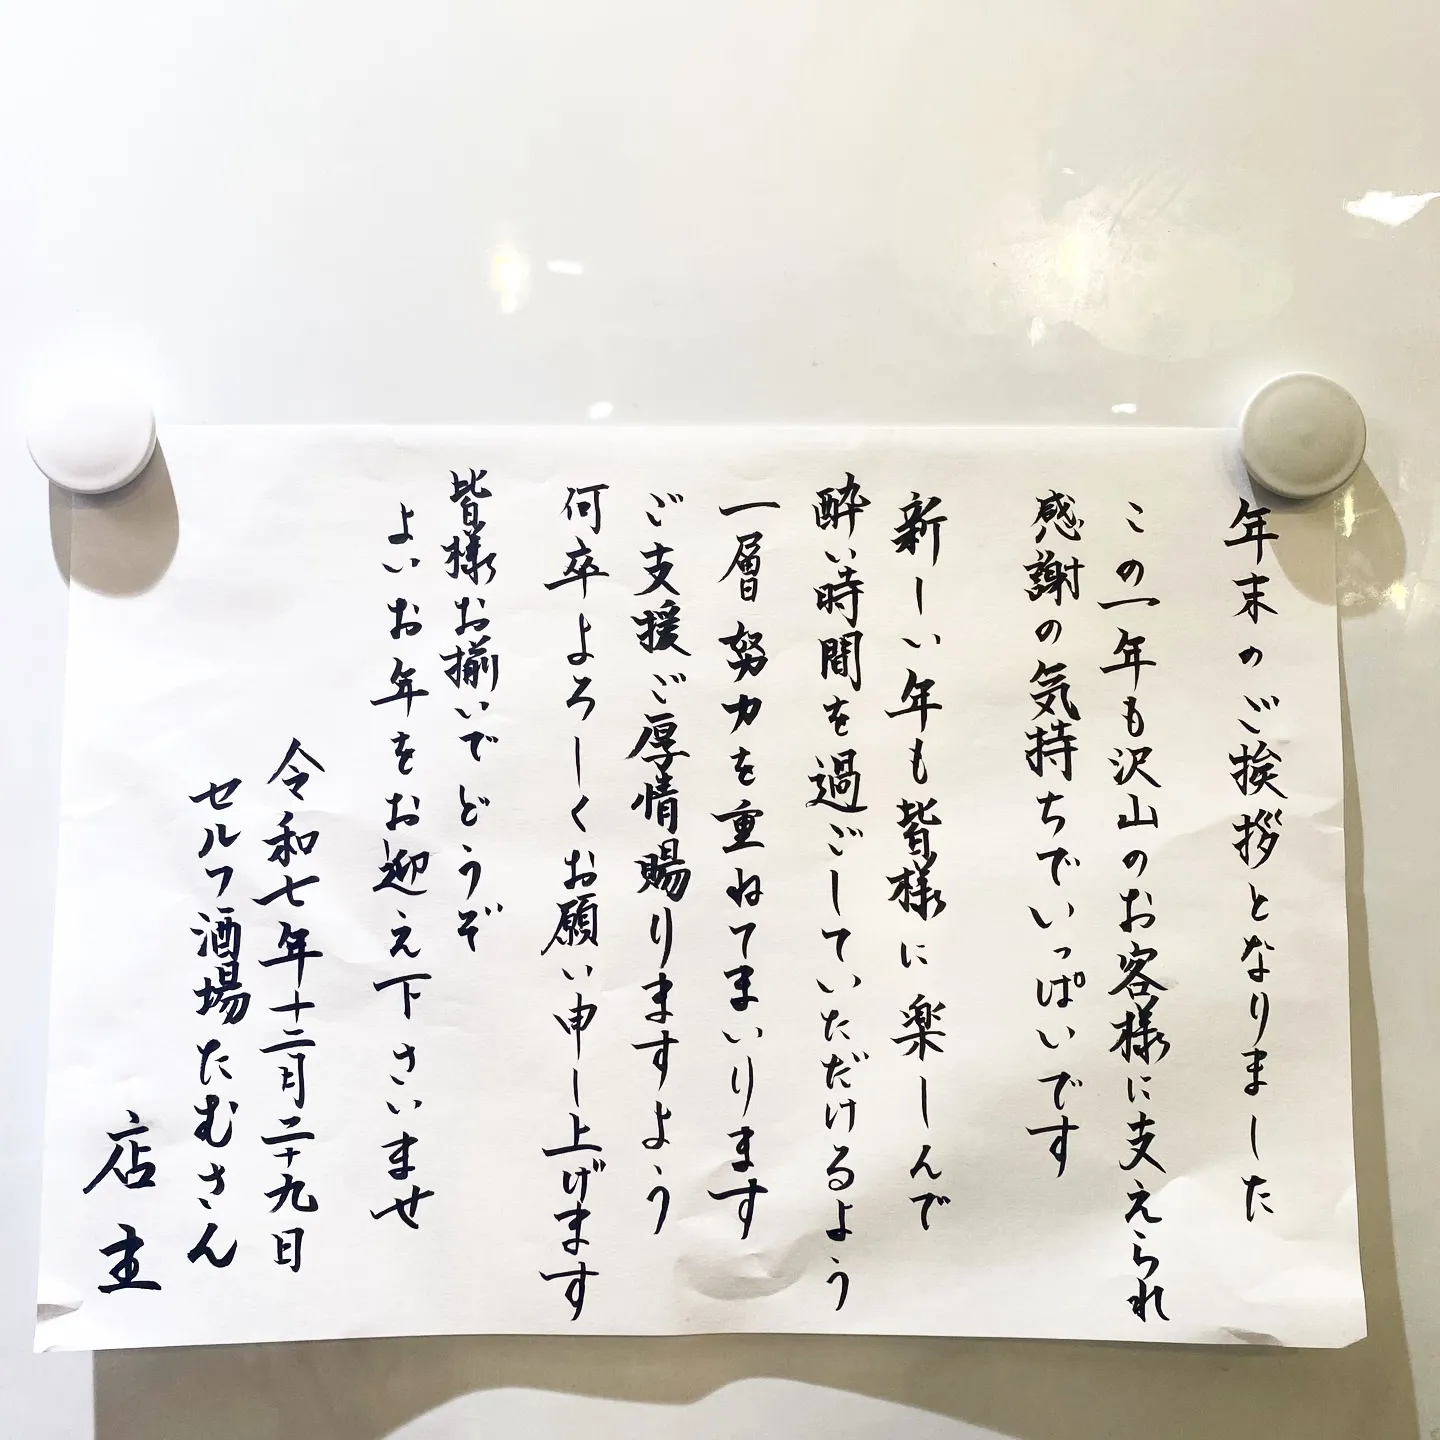 年末のご挨拶となりました
この一年も沢山のお客様に支えられ
感謝の気持ちでいっぱいです
新しい年も皆様に楽しんで
酔い時間を過ごしていただけるよう
一層努力を重ねてまいります
ご支援ご厚情賜りますよう
何卒よろしくお願い申し上げます
皆様お揃いでどうぞ
よいお年をお迎え下さいませ
令和七年十二月二十九日
セルフ酒場たむさん
店主